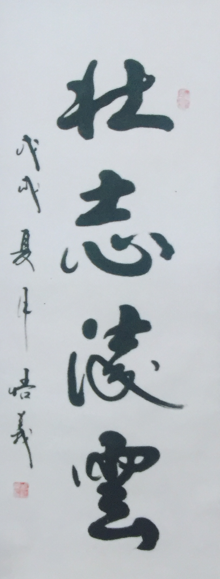 壮志凌雲
戊戌夏月悟義